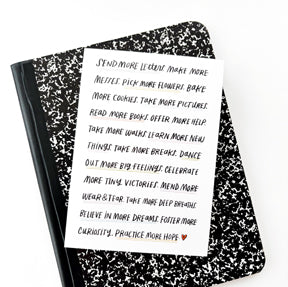 SEND MORE LETTERS. MAKE MORE
MESSES. PICK MORE FLOWERS. BAKE
MORE COOKIES. TAKE MORE PICTURES.
READ MORE BOOKS. OFFER MORE HELP.
TAKE MORE WALKS. LEARN MORE NEW
THINGS. TAKE MORE BREAKS. DANCE
OUT MORE BIG FEELINGS. CELEBRATE
MORE TINY VICTORIES. MEND MORE
WEAR & TEAR. TAKE MORE DEEP BREATHS.
BELIEVE IN MORE DREAMS. FOSTER MORE
CURIOSITY. PRACTICE MORE HOPE. ♥